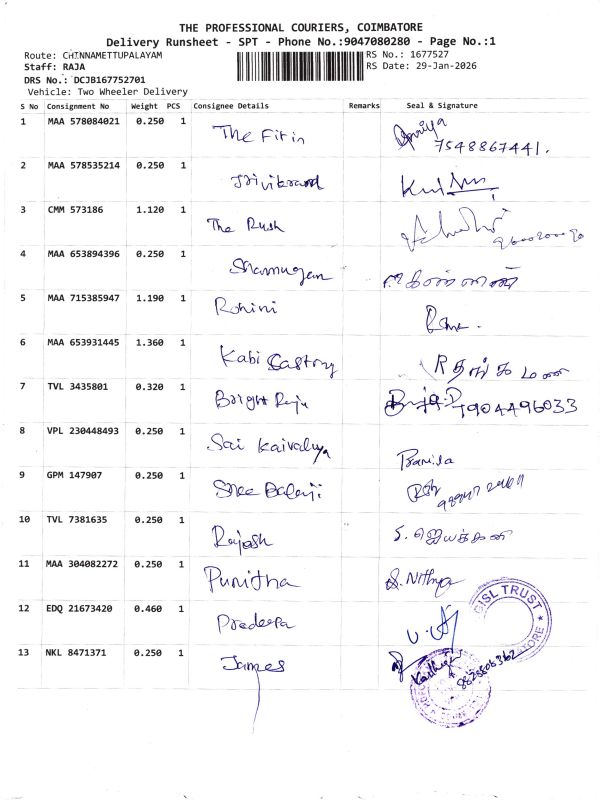 THE PROFESSIONAL COURIERS, COIMBATORE
Delivery Runsheet - SPT - Phone No.:9047080280 - Page No.:1
Route: CHINNAMETTUPALAYAM RS No.: 1677527
Staff: RAJA RS Date: 29-Jan-2026
DRS No.: DCJB167752701
Vehicle: Two Wheeler Delivery
S No Consignment No Weight PCS Consignee Details Remarks Seal & Signature
1 MAA 578084021 0.250 1 The Fit in
7548867441.
2 MAA 578535214 0.250 1
3 CMM 573186 1.120 1 The Rush
4 MAA 653894396 0.250 1 Shanmugan
5 MAA 715385947 1.190 1 Rohini
6 MAA 653931445 1.360 1 Kabi
7 TVL 3435801 0.320 1 Bright Raju 7904496033
8 VPL 230448493 0.250 1 Sai Kaivalya Pramila
9 GPM 147907 0.250 1 Sree Balaji
10 TVL 7381635 0.250 1 Rajesh
11 MAA 304082272 0.250 1 Punitha S. Nithya
12 EDQ 21673420 0.460 1 Pradeepa
GISL TRUST
13 NKL 8471371 0.250 1 James